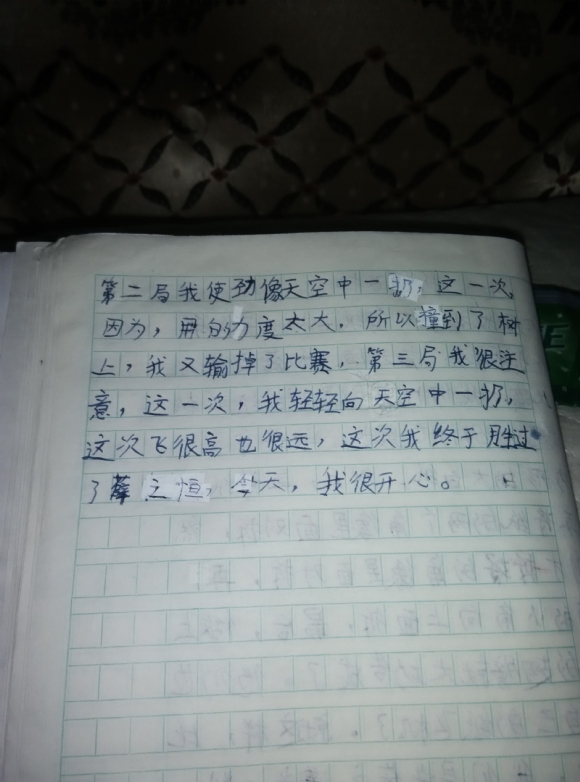 第二局我使劲像天空中一扔，这一次。
因为，用的力度太大，所以撞到了树
上，我又输掉了比赛，第三局我很注
意，这一次，我轻轻向天空中一扔，
这次飞很高也很远，这次我终于胜过
了薛之恒，今天，我很开心。